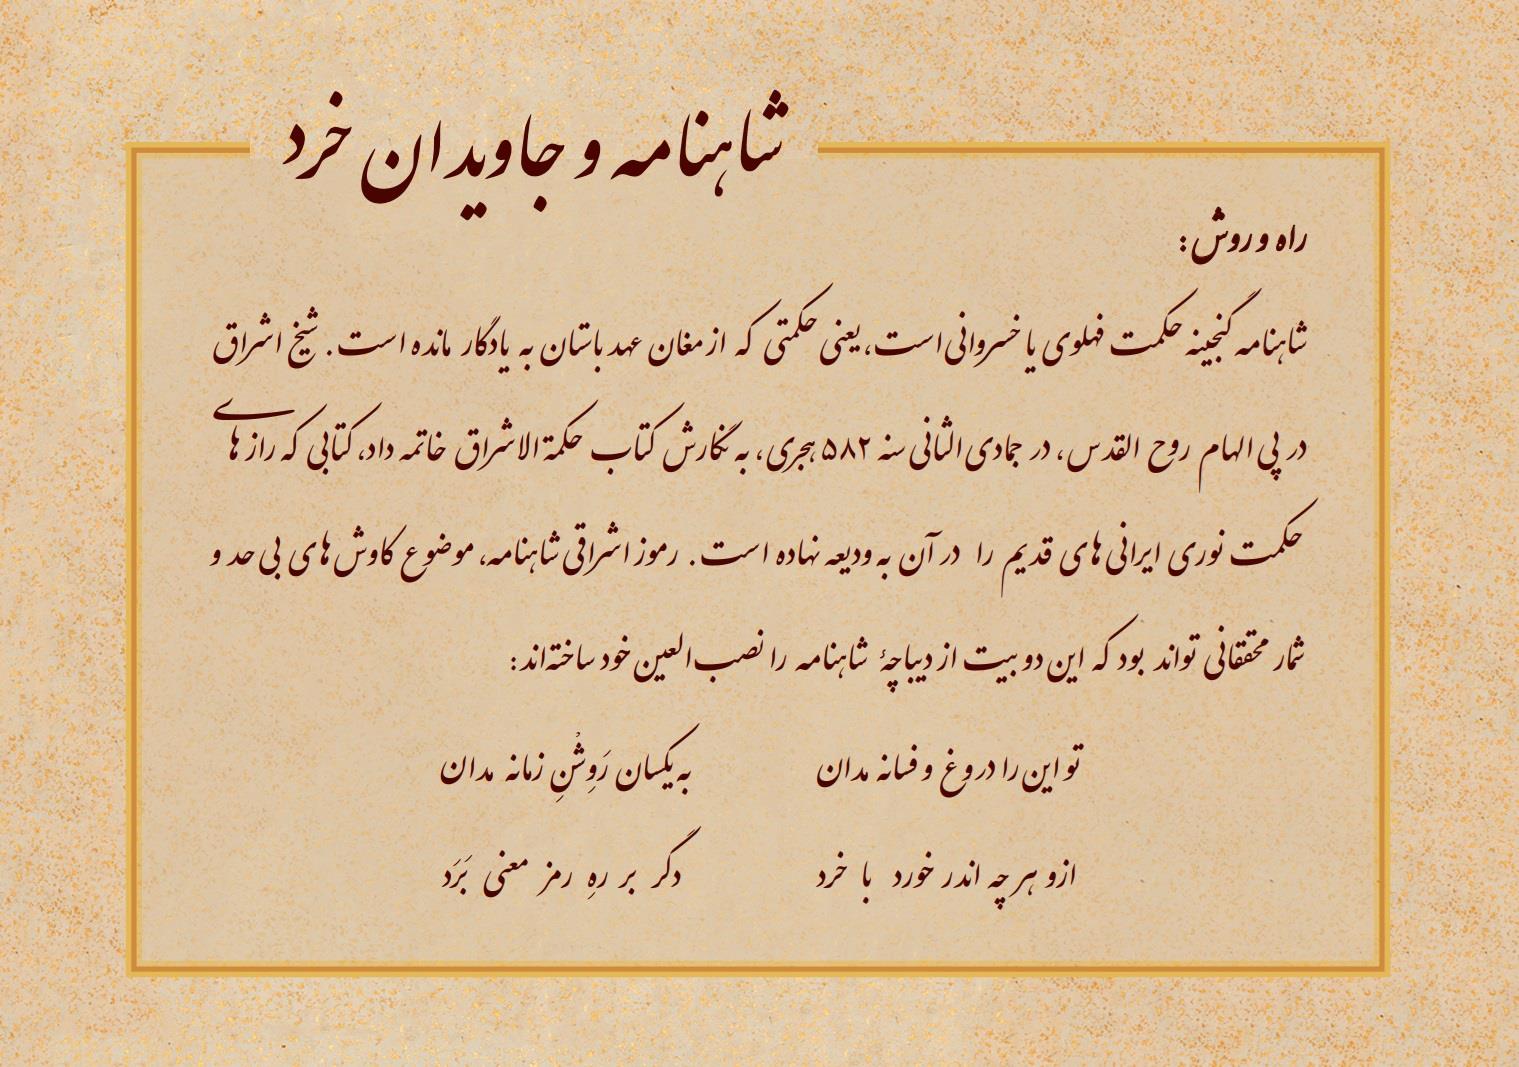 شاهنامه و جاویدان خرد
راه و روش:
شاهنامه گنجینه حکمت فهلوی یا خسروانی است، یعنی حکمتی که از مغان عهد باستان به یادگار مانده است. شیخ اشراق
در پی الهام روح القدس، در جمادی الثانی سنه ۵۸۲ هجری، به نگارش کتاب حکمة الاشراق خاتمه داد، کتابی که رازهای
حکمت نوری ایرانی‌های قدیم را در آن به ودیعه نهاده است. رموز اشراقی شاهنامه، موضوع کاوش‌های بی حد و
شمار محققانی تواند بود که این دو بیت از دیباچهٔ شاهنامه را نصب‌العین خود ساخته‌اند:
تو این را دروغ و فسانه مدان به یکسان رَوِشْنِ زمانه مدان
ازو هر چه اندر خورد با خرد دگر بر رهِ رمز معنی بَرَد